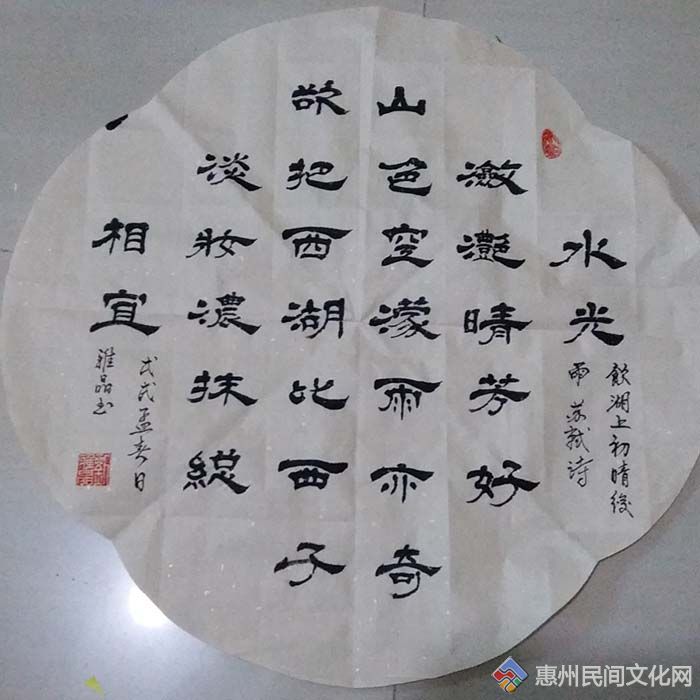 飲湖上初晴後
雨 苏轼诗
水光
瀲灩晴芳好
山色空濛雨亦奇
欲把西湖比西子
淡妝濃抹緫
相宜
戊戌孟春日
雅晶书
惠州民间文化网